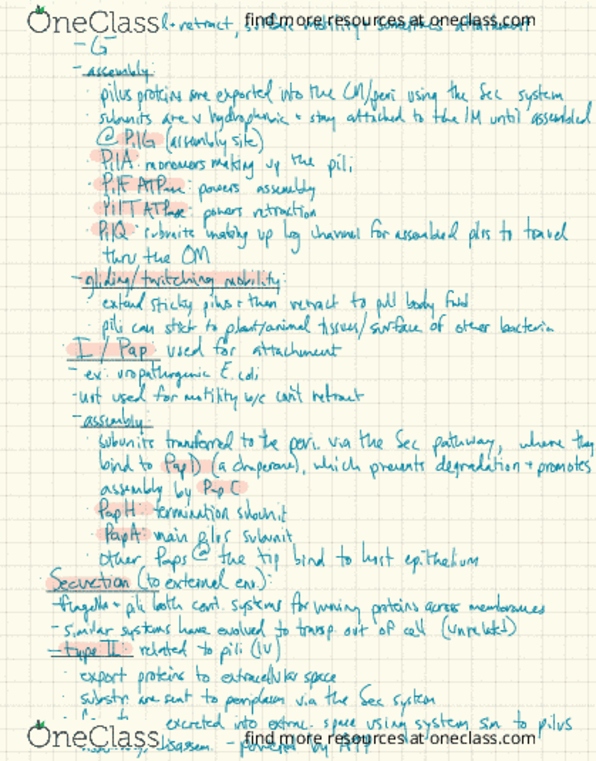 OneClass find more resources at oneclass.com
+ retract, surface mobility + sometimes attachment
- G-
- assembly:
· pilus proteins are exported into the CM/peri using the Sec system
· subunits are v hydrophobic + stay attached to the IM until assembled
@ PilG (assembly site)
· PilA: monomers making up the pili
· PilF ATPase: powers assembly
· PilT ATPase: powers retraction
· PilQ: subunits making up big channel for assembled plis to travel
thru the OM
- gliding/twitching mobility:
· extend sticky pilus + then retract to pull body fwd
· pili can stick to plant/animal tissues/surface of other bacteria
· I / Pap: used for attachment
- ex: uropathogenic E. coli
- not used for motility b/c can't retract
- assembly:
· subunits transferred to the peri. via the Sec pathway, where they
bind to PapD (a chaperone), which prevents degradation + promotes
assembly by PapC
· PapH: termination subunit
· PapA: main pilus subunit
· other Paps @ the tip bind to host epithelium
Secretion (to external env):
- flagella + pili both cont. systems for moving proteins across membranes
- similar systems have evolved to transp. out of cell (unrelated)
- type II: related to pili (IV)
· export proteins to extracellular space
· substr. are sent to periplasm via the Sec system
excreted into extrac. space using system sim to pilus
OneClass find more resources at oneclass.com
disassem. - powered by ATP